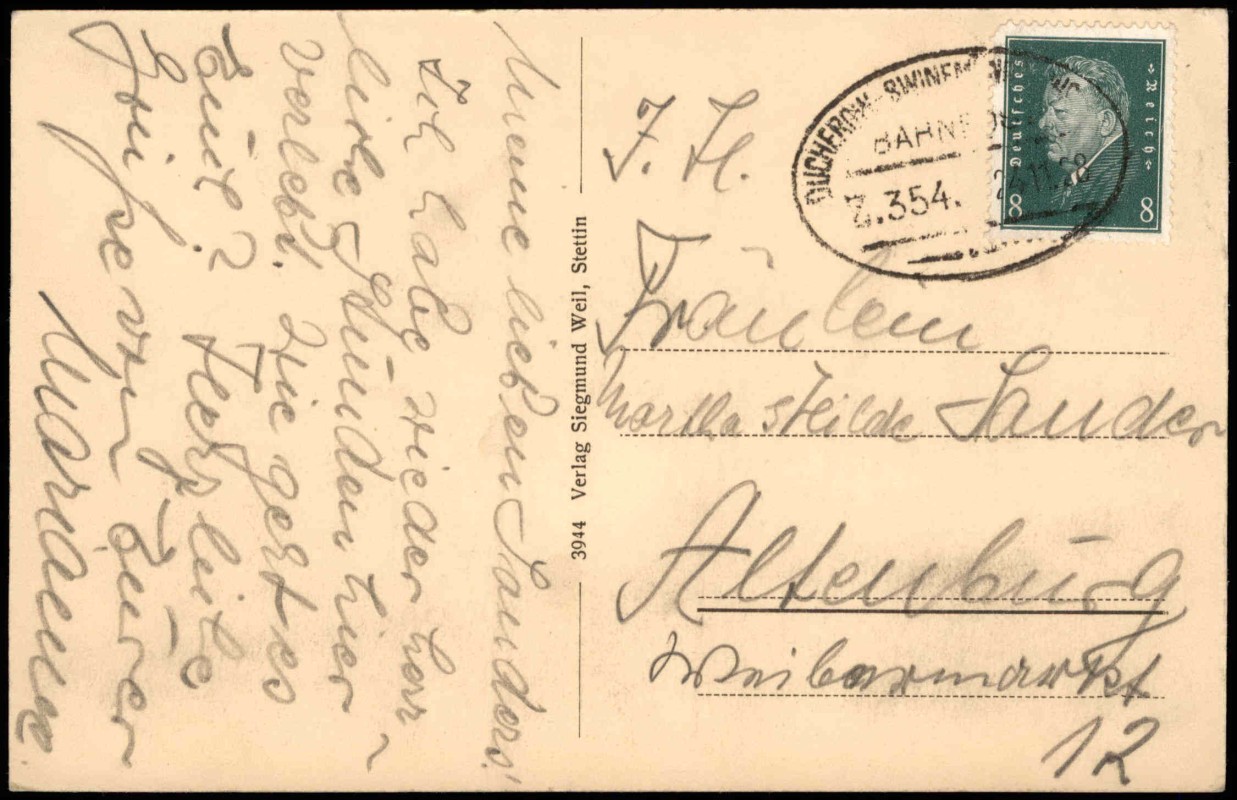 Meine lieben Sanders!
Ich habe wieder herr-
liche Stunden hier
verlebt. Wie geht es
Euch? Herzliche
Grüsse von Eurer
Marianne
3944 Verlag Siegmund Weil, Stettin
DUCHEROW-SWINEM
BAHNPOST
Z.354.
11.28
Deutsches
Reich
8 8
F. H.
Fräulein
Martha Hilde Sander
Altenburg
Weibermarkt
12